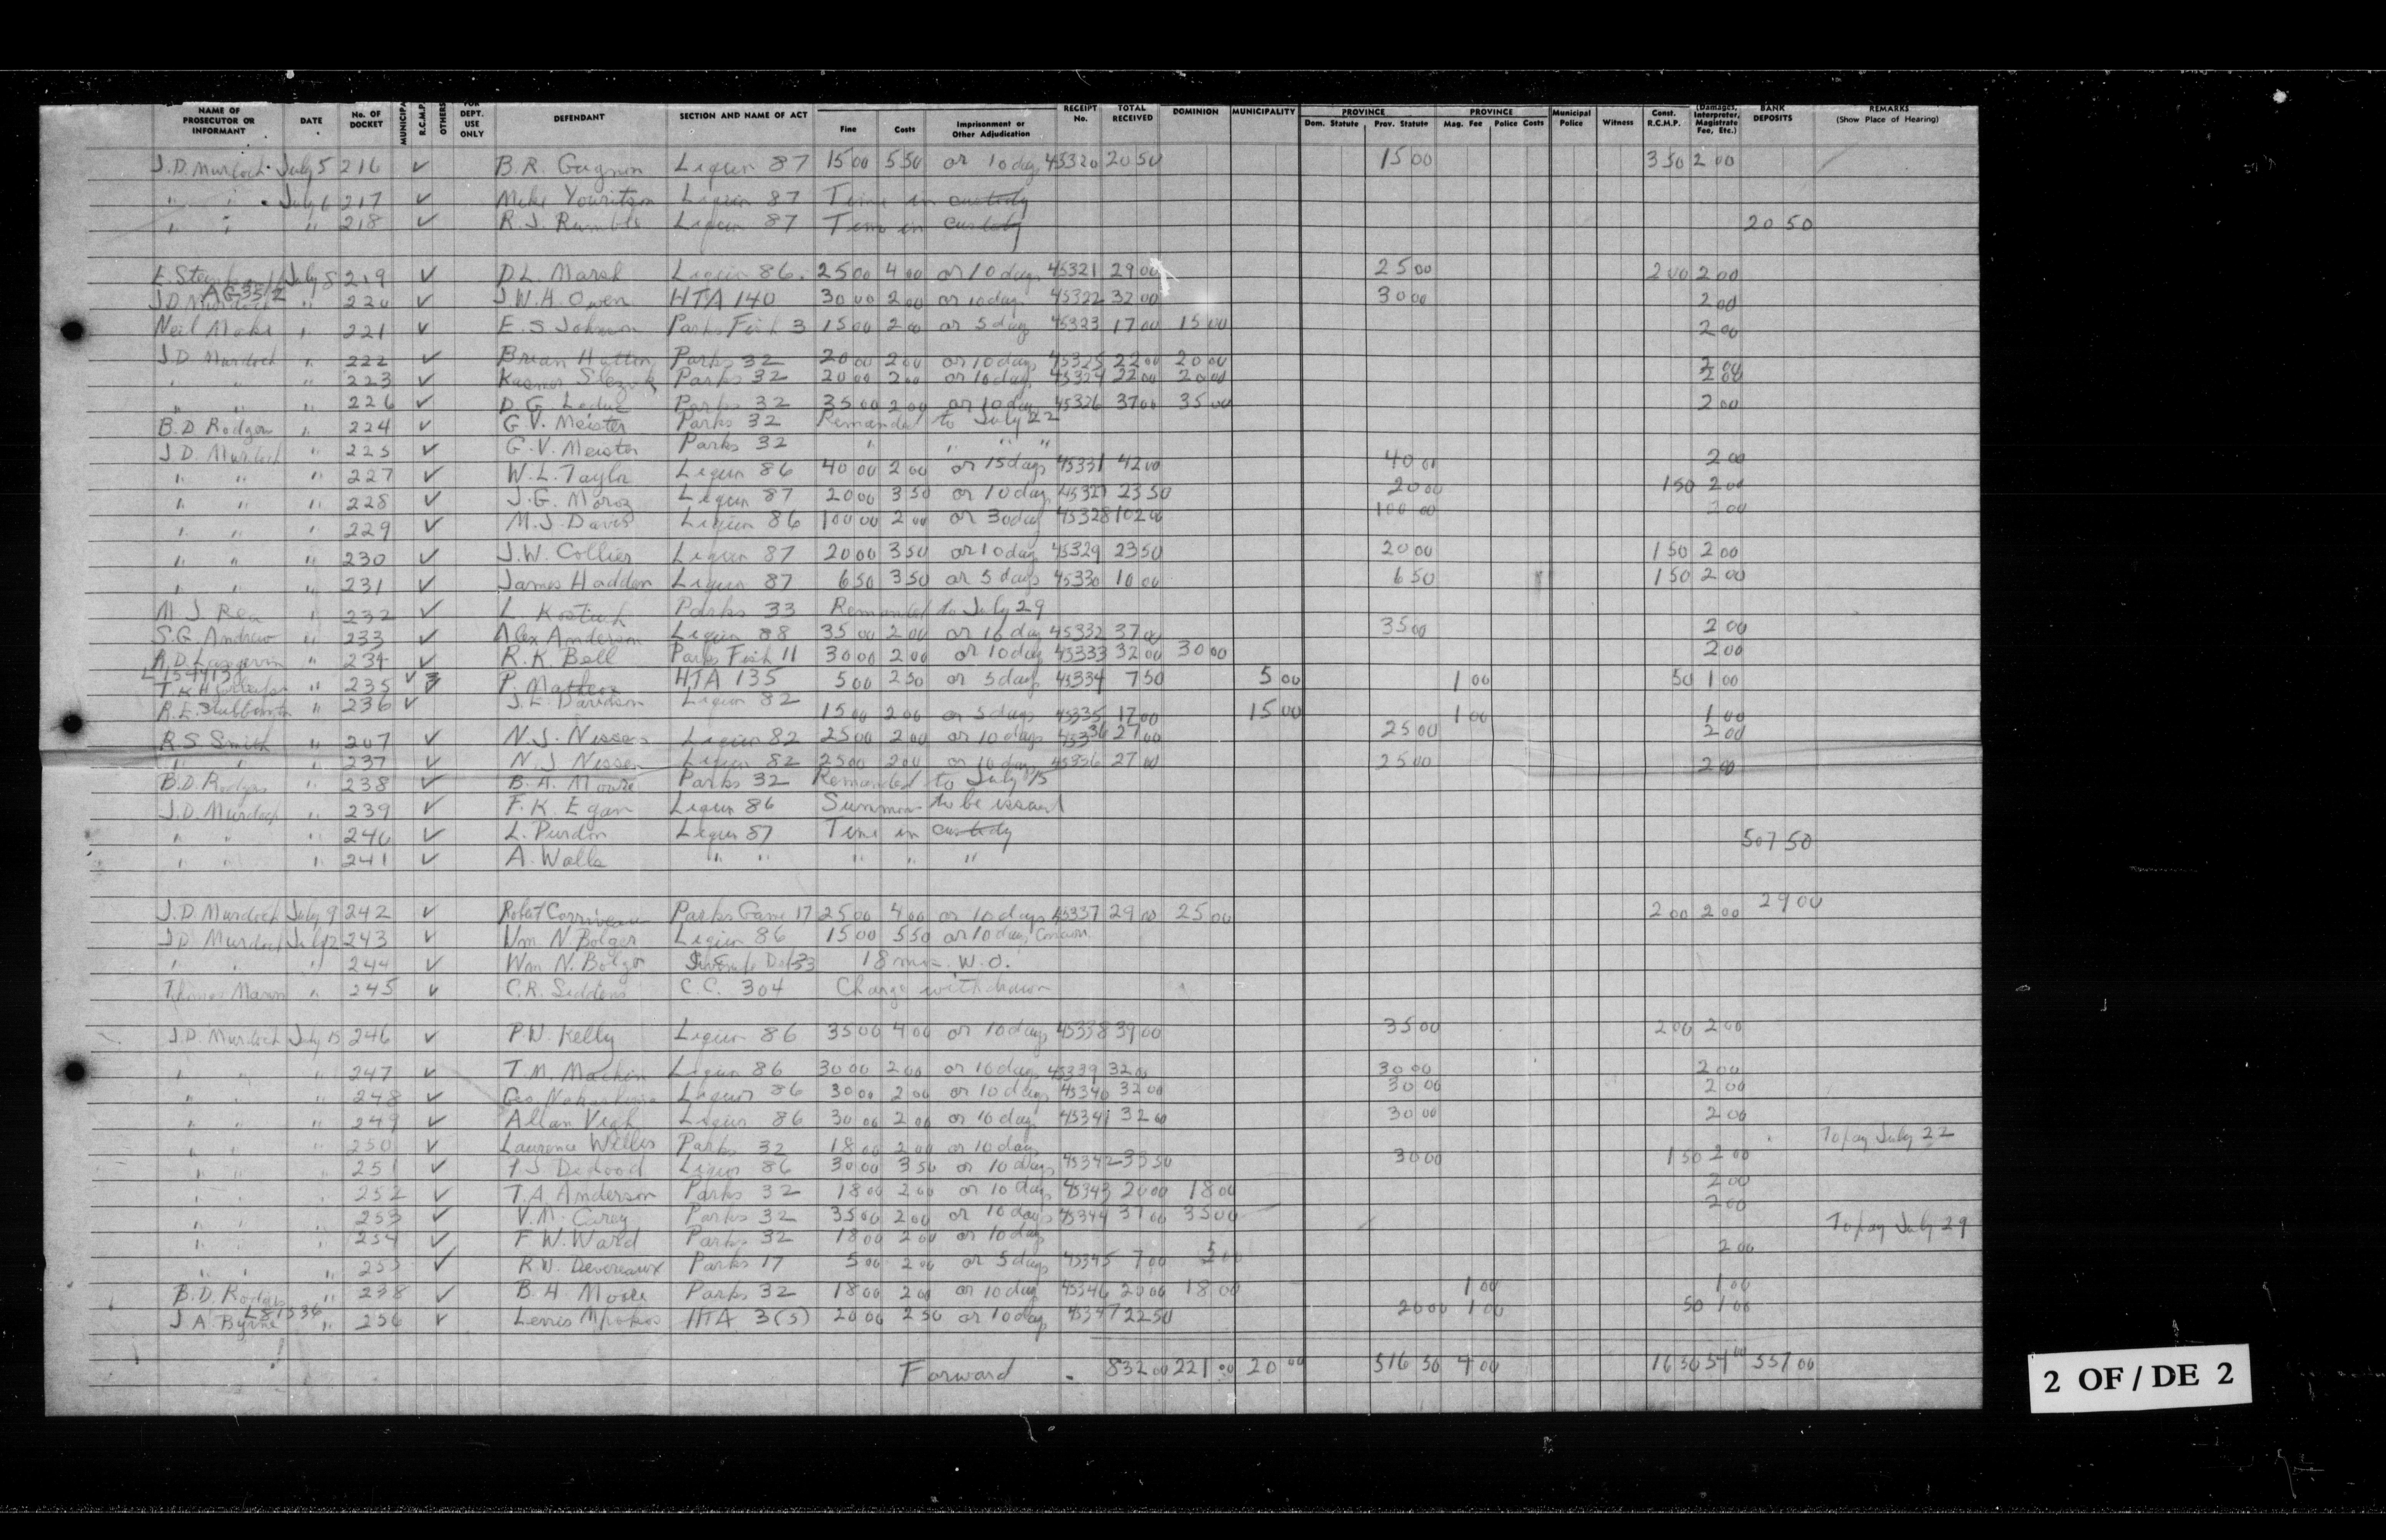 NAME OF PROSECUTOR OR INFORMANT DATE No. OF DOCKET MUNICIPA R.C.M.P. OTHERS FOR DEPT. USE ONLY DEFENDANT SECTION AND NAME OF ACT Fine Costs Imprisonment or Other Adjudication RECEIPT No. TOTAL RECEIVED DOMINION MUNICIPALITY PROVINCE Dom. Statute Prov. Statute PROVINCE Mag. Fee Police Costs Municipal Police Witness Const. R.C.M.P. (Damages, Interpreter, Magistrate Fee, Etc.) BANK DEPOSITS REMARKS (Show Place of Hearing)
J.D. Murdoch July 5 216 ✓ B.R. Gagnon Liquor 87 15 00 5 50 or 10 days 45320 20 50 15 00 3 50 2 00
" " July 6 217 ✓ Mike Liquor 87 Time in custody
" " " 218 ✓ R.J. Rumbles Liquor 87 Time in custody 20 50
July 8 219 ✓ D.L. Marsh Liquor 86 25 00 4 00 or 10 days 45321 29 00 25 00 2 00 2 00
AG3512
J.D. Murdoch 220 ✓ J.W.H. Owen HTA 140 30 00 2 00 or 10 days 45322 32 00 30 00 2 00
Neil " 221 ✓ E.S. Johnson Parks Fish 3 15 00 2 00 or 5 days 45323 17 00 15 00 2 00
J.D. Murdoch " 222 ✓ Brian Hatton Parks 32 20 00 2 00 or 10 days 45325 22 00 20 00 2 00
" " " 223 ✓ Parks 32 20 00 2 00 or 10 days 45324 22 00 20 00 2 00
" " " 226 ✓ D.G. Leduc Parks 32 35 00 2 00 or 10 days 45326 37 00 35 00 2 00
B.D. Rodgers " 224 ✓ G.V. Meister Parks 32 Remanded to July 22
J.D. Murdoch " 225 ✓ G.V. Meister Parks 32 " " " "
" " " 227 ✓ W.L. Taylor Liquor 86 40 00 2 00 or 15 days 45331 42 00 40 00 2 00
" " " 228 ✓ J.G. Moroz Liquor 87 20 00 3 50 or 10 days 45327 23 50 20 00 1 50 2 00
" " " 229 ✓ M.J. Davis Liquor 86 100 00 2 00 or 30 days 45328 102 00 100 00 2 00
" " " 230 ✓ J.W. Collier Liquor 87 20 00 3 50 or 10 days 45329 23 50 20 00 1 50 2 00
" " " 231 ✓ James Hadden Liquor 87 6 50 3 50 or 5 days 45330 10 00 6 50 1 50 2 00
M.J. Rea " 232 ✓ L. Parks 33 Remanded to July 29
S.G. Andrew " 233 ✓ Alex Anderson Liquor 88 35 00 2 00 or 10 days 45332 37 00 35 00 2 00
A.D. " 234 ✓ R.K. Bell Parks Fish 11 30 00 2 00 or 10 days 45333 32 00 30 00 2 00
" 235 ✓ P. HTA 135 5 00 2 50 or 5 days 45334 7 50 5 00 1 00 50 1 00
R.E. " 236 ✓ J.E. Davidson Liquor 82 15 00 2 00 or 5 days 45335 17 00 15 00 1 00 1 00
R.S. Smith " 207 ✓ N.J. Nissen Liquor 82 25 00 2 00 or 10 days 45336 27 00 25 00 2 00
" " " 237 ✓ N.J. Nissen Liquor 82 25 00 2 00 or 10 days 45336 27 00 25 00 2 00
B.D. Rodgers " 238 ✓ B.H. Moore Parks 32 Remanded to July 15
J.D. Murdoch " 239 ✓ F.K. Egan Liquor 86 Summons to be issued
" " " 240 ✓ L. Purdon Liquor 87 Time in custody 507 50
" " " 241 ✓ A. Walls " " " " "
J.D. Murdoch July 9 242 ✓ Robert Corriveau Parks Game 17 25 00 4 00 or 10 days 45337 29 00 25 00 2 00 2 00 29 00
J.D. Murdoch July 12 243 ✓ Wm. N. Bolger Liquor 86 15 00 5 50 or 10 days
" " " 244 ✓ Wm N. Bolger 18 mos. W.O.
Mason " 245 ✓ C.R. Siddons C.C. 304 Charge withdrawn
J.D. Murdoch July 15 246 ✓ P.W. Kelly Liquor 86 35 00 4 00 or 10 days 45338 39 00 35 00 2 00 2 00
" " " 247 ✓ T.M. Machin Liquor 86 30 00 2 00 or 10 days 45339 32 00 30 00 2 00
" " " 248 ✓ Geo. Liquor 86 30 00 2 00 or 10 days 45340 32 00 30 00 2 00
" " " 249 ✓ Allan Liquor 86 30 00 2 00 or 10 days 45341 32 00 30 00 2 00
" " " 250 ✓ Laurence Willis Parks 32 18 00 2 00 or 10 days To pay July 22
" " " 251 ✓ Liquor 86 30 00 3 50 or 10 days 45342 33 50 30 00 1 50 2 00
" " " 252 ✓ T.A. Anderson Parks 32 18 00 2 00 or 10 days 45343 20 00 18 00 2 00
" " " 253 ✓ V.M. Carey Parks 32 35 00 2 00 or 10 days 45344 37 00 35 00 2 00
" " " 254 ✓ F.W. Ward Parks 32 18 00 2 00 or 10 days To pay July 29
" " " 255 ✓ R.W. Devereaux Parks 17 5 00 2 00 or 5 days 45345 7 00 5 00 2 00
B.D. Rodgers " 238 ✓ B.H. Moore Parks 32 18 00 2 00 or 10 days 45346 20 00 18 00 1 00 1 00
L81536
J.A. Byrne " 256 ✓ HTA 3(5) 20 00 2 50 or 10 days 45347 22 50 20 00 1 00 50 1 00
Forward 832 00 221 00 20 00 516 50 4 00 16 50 54 00 557 00
2 OF / DE 2